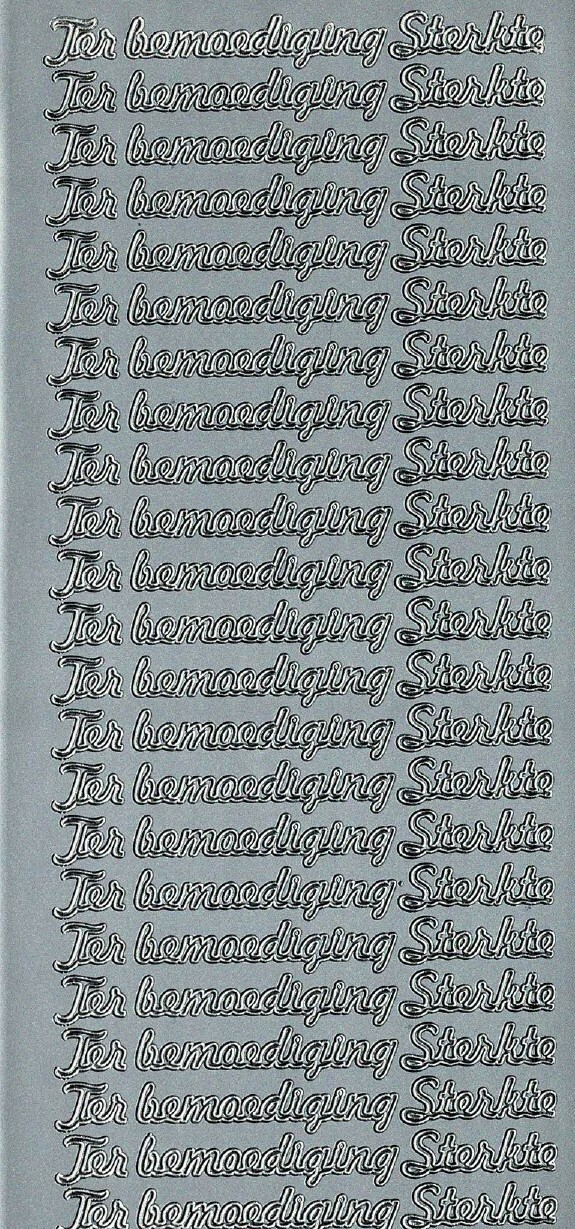 Ter bemoediging Sterkte
Ter bemoediging Sterkte
Ter bemoediging Sterkte
Ter bemoediging Sterkte
Ter bemoediging Sterkte
Ter bemoediging Sterkte
Ter bemoediging Sterkte
Ter bemoediging Sterkte
Ter bemoediging Sterkte
Ter bemoediging Sterkte
Ter bemoediging Sterkte
Ter bemoediging Sterkte
Ter bemoediging Sterkte
Ter bemoediging Sterkte
Ter bemoediging Sterkte
Ter bemoediging Sterkte
Ter bemoediging Sterkte
Ter bemoediging Sterkte
Ter bemoediging Sterkte
Ter bemoediging Sterkte
Ter bemoediging Sterkte
Ter bemoediging Sterkte
Ter bemoediging Sterkte